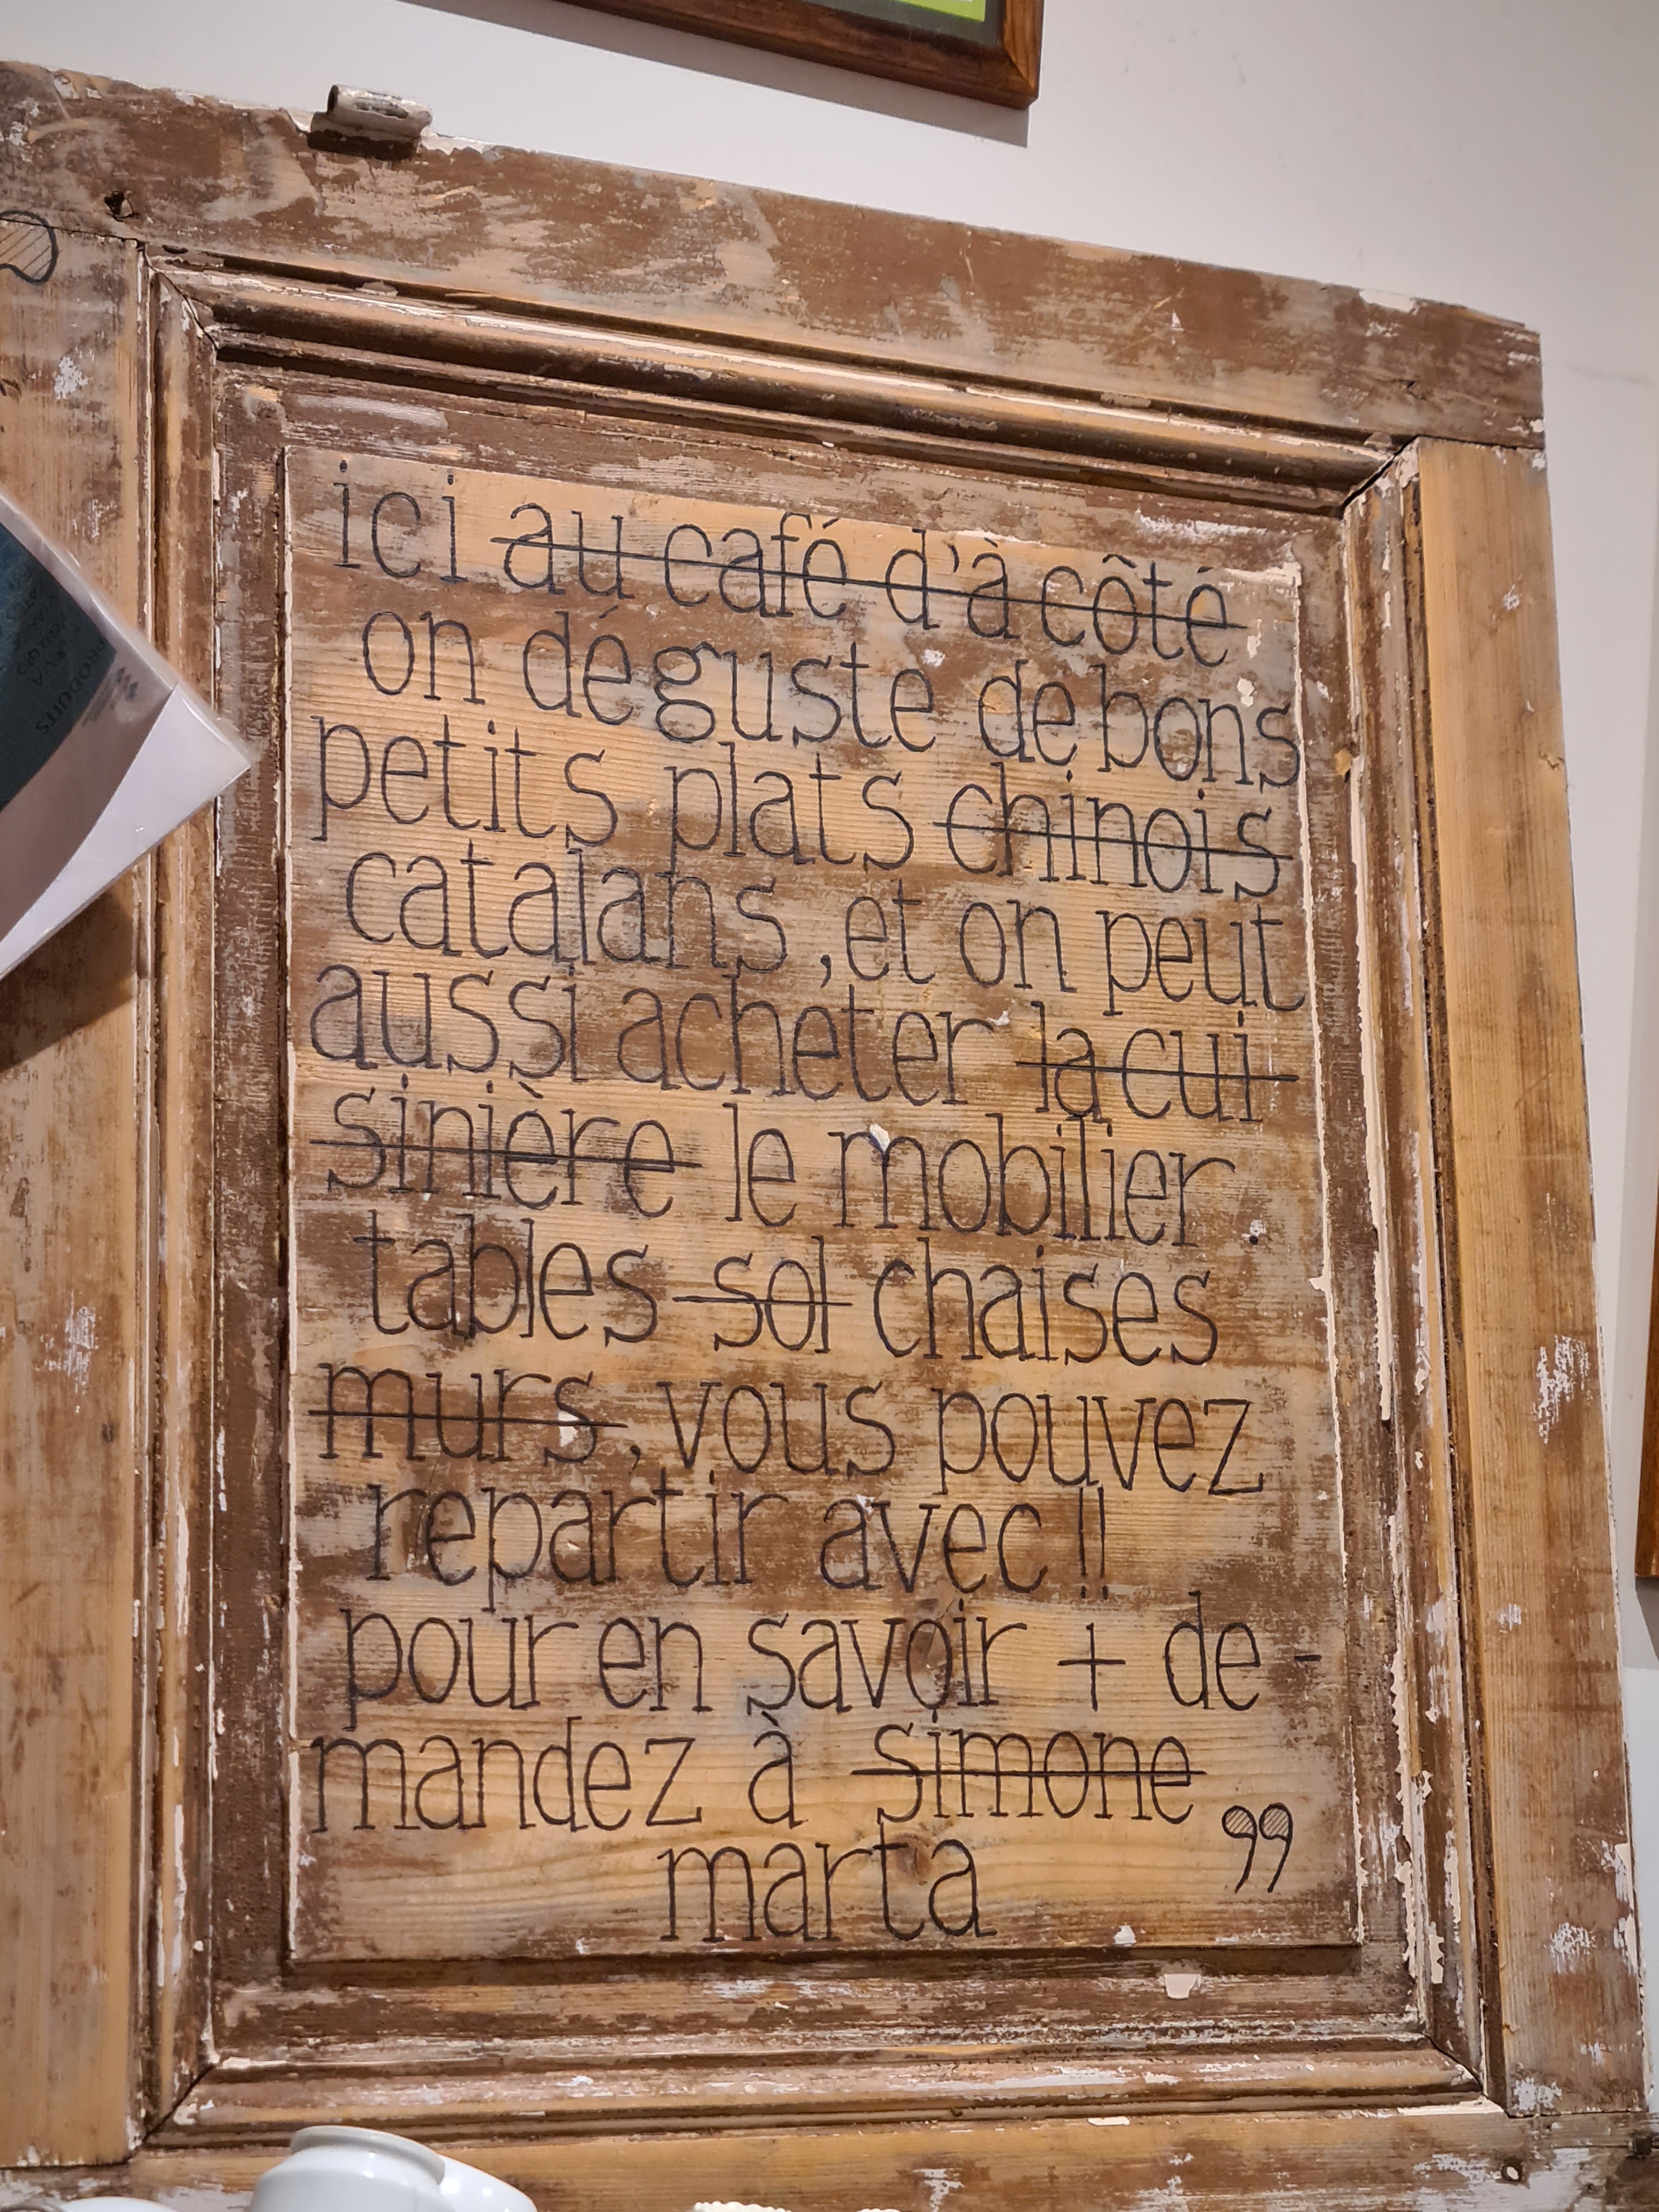 ici au café d'à côté
on déguste de bons
petits plats chinois
catalans, et on peut
aussi acheter la cui
sinière le mobilier.
tables sol chaises
murs, vous pouvez
repartir avec !!
pour en savoir + de-
mandez à simone
marta ”
PRODUITS